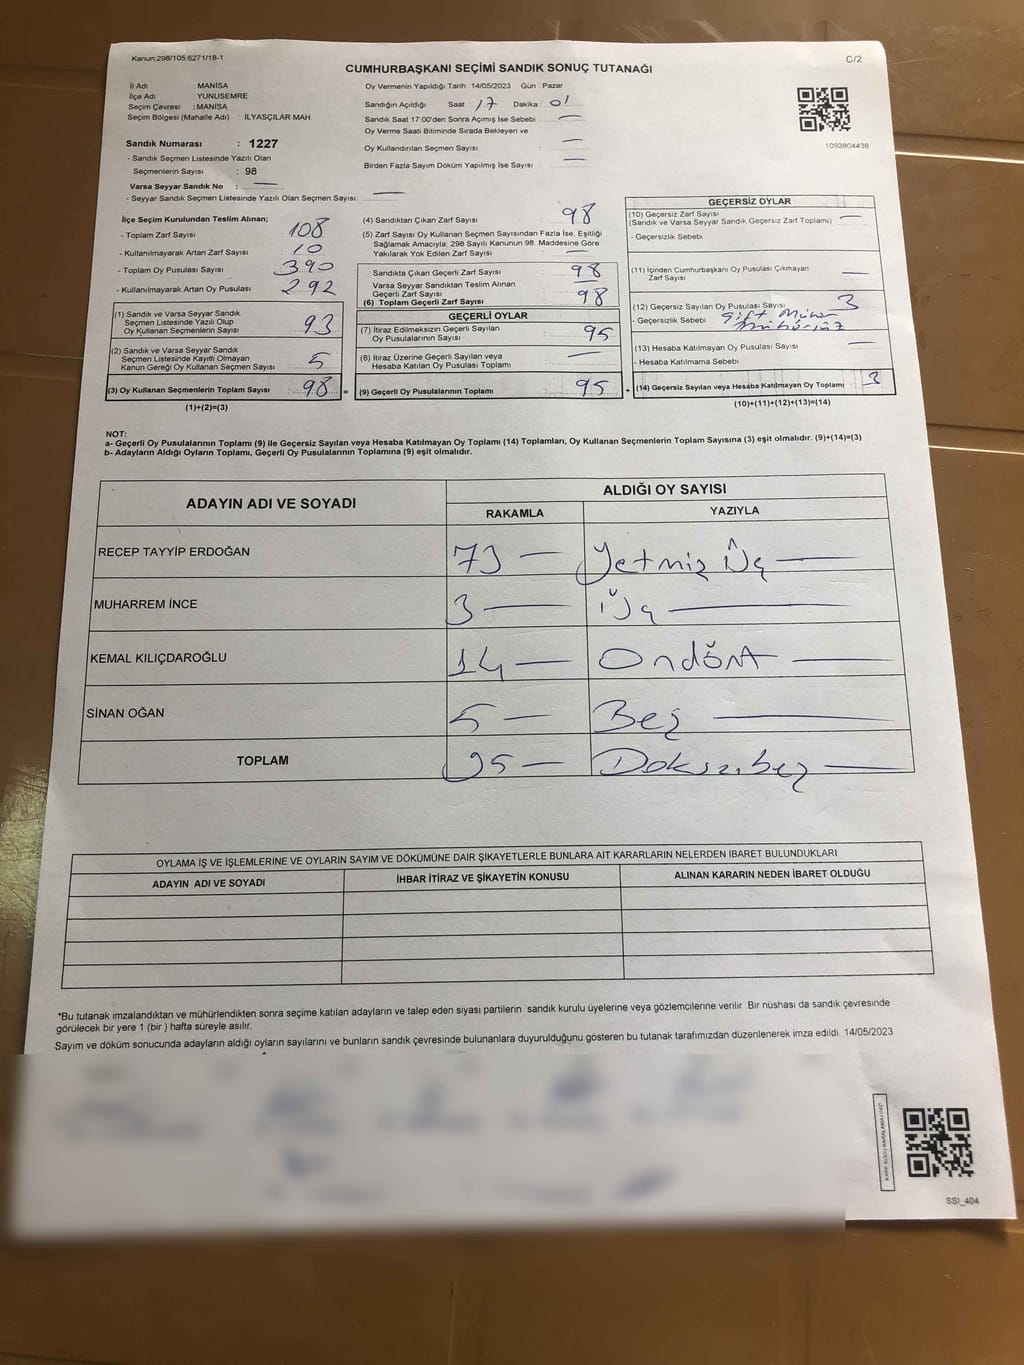 Kanun;298/105;6271/18-1
C/2
CUMHURBAŞKANI SEÇİMİ SANDIK SONUÇ TUTANAĞI
İl Adı MANİSA
İlçe Adı YUNUSEMRE
Seçim Çevresi : MANİSA
Seçim Bölgesi (Mahalle Adı) : İLYASÇILAR MAH.
Sandık Numarası : 1227
- Sandık Seçmen Listesinde Yazılı Olan
Seçmenlerin Sayısı : 98
Varsa Seyyar Sandık No : —
- Seyyar Sandık Seçmen Listesinde Yazılı Olan Seçmen Sayısı: —
Oy Vermenin Yapıldığı Tarih :14/05/2023 Gün : Pazar
Sandığın Açıldığı Saat : 17 Dakika : 01
Sandık Saat 17:00'den Sonra Açılmış İse Sebebi : —
Oy Verme Saati Bitiminde Sırada Bekleyen ve
Oy Kullandırılan Seçmen Sayısı : —
Birden Fazla Sayım Döküm Yapılmış İse Sayısı : —
1093804438
İlçe Seçim Kurulundan Teslim Alınan;
- Toplam Zarf Sayısı : 108
- Kullanılmayarak Artan Zarf Sayısı : 10
- Toplam Oy Pusulası Sayısı : 390
- Kullanılmayarak Artan Oy Pusulası : 292
(1) Sandık ve Varsa Seyyar Sandık
Seçmen Listesinde Yazılı Olup
Oy Kullanan Seçmenlerin Sayısı : 93
(2) Sandık ve Varsa Seyyar Sandık
Seçmen Listesinde Kayıtlı Olmayan
Kanun Gereği Oy Kullanan Seçmen Sayısı : 5
(3) Oy Kullanan Seçmenlerin Toplam Sayısı : 98 =
(1)+(2)=(3)
(4) Sandıktan Çıkan Zarf Sayısı : 98
(5) Zarf Sayısı Oy Kullanan Seçmen Sayısından Fazla İse, Eşitliği
Sağlamak Amacıyla; 298 Sayılı Kanunun 98. Maddesine Göre
Yakılarak Yok Edilen Zarf Sayısı : —
Sandıkta Çıkan Geçerli Zarf Sayısı : 98
Varsa Seyyar Sandıktan Teslim Alınan
Geçerli Zarf Sayısı : —
(6) Toplam Geçerli Zarf Sayısı : 98
GEÇERLİ OYLAR
(7) İtiraz Edilmeksizin Geçerli Sayılan
Oy Pusulalarının Sayısı : 95
(8) İtiraz Üzerine Geçerli Sayılan veya
Hesaba Katılan Oy Pusulası Toplamı : —
(9) Geçerli Oy Pusulalarının Toplamı : 95 +
GEÇERSİZ OYLAR
(10) Geçersiz Zarf Sayısı
(Sandık ve Varsa Seyyar Sandık Geçersiz Zarf Toplamı) : —
- Geçersizlik Sebebi
(11) İçinden Cumhurbaşkanı Oy Pusulası Çıkmayan
Zarf Sayısı : —
(12) Geçersiz Sayılan Oy Pusulası Sayısı : 3
- Geçersizlik Sebebi : Çift Mühür
Mühürsüz
(13) Hesaba Katılmayan Oy Pusulası Sayısı : —
- Hesaba Katılmama Sebebi
(14) Geçersiz Sayılan veya Hesaba Katılmayan Oy Toplamı : 3
(10)+(11)+(12)+(13)=(14)
NOT:
a- Geçerli Oy Pusulalarının Toplamı (9) ile Geçersiz Sayılan veya Hesaba Katılmayan Oy Toplamı (14) Toplamları, Oy Kullanan Seçmenlerin Toplam Sayısına (3) eşit olmalıdır. (9)+(14)=(3)
b- Adayların Aldığı Oyların Toplamı, Geçerli Oy Pusulalarının Toplamına (9) eşit olmalıdır.
ADAYIN ADI VE SOYADI ALDIĞI OY SAYISI
RAKAMLA YAZIYLA
RECEP TAYYİP ERDOĞAN 73 — Yetmiş Üç —
MUHARREM İNCE 3 — Üç —
KEMAL KILIÇDAROĞLU 14 — Ondört —
SİNAN OĞAN 5 — Beş —
TOPLAM 95 — Doksanbeş —
OYLAMA İŞ VE İŞLEMLERİNE VE OYLARIN SAYIM VE DÖKÜMÜNE DAİR ŞİKAYETLERLE BUNLARA AİT KARARLARIN NELERDEN İBARET BULUNDUKLARI
ADAYIN ADI VE SOYADI İHBAR İTİRAZ VE ŞİKAYETİN KONUSU ALINAN KARARIN NEDEN İBARET OLDUĞU
*Bu tutanak imzalandıktan ve mühürlendikten sonra seçime katılan adayların ve talep eden siyasi partilerin sandık kurulu üyelerine veya gözlemcilerine verilir. Bir nüshası da sandık çevresinde
görülecek bir yere 1 (bir) hafta süreyle asılır.
Sayım ve döküm sonucunda adayların aldığı oyların sayılarını ve bunların sandık çevresinde bulunanlara duyurulduğunu gösteren bu tutanak tarafımızdan düzenlenerek imza edildi. 14/05/2023
SSI_404